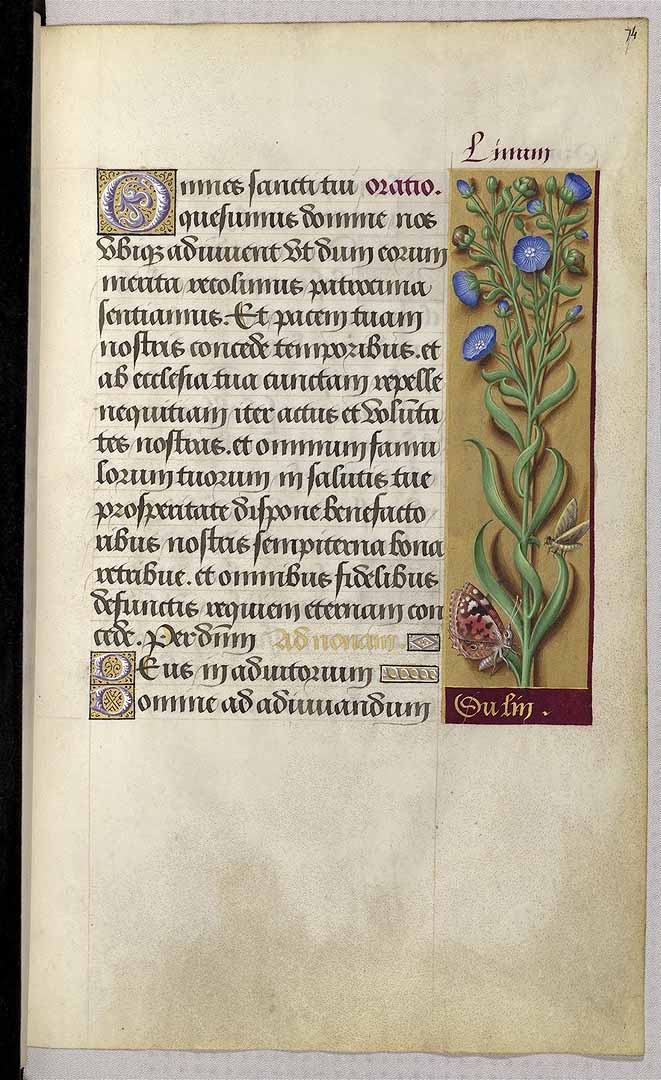 74
Linum
Omnes sancti tui oratio.
quesumus domine nos
Vbiq3 adiuuent Vt dum eorum
merita recolimus patrocinia
sentiamus. Et pacem tuam
nostris concede temporibus. et
ab ecclesia tua cunctam repelle
nequitiam iter actus et Volūta
tes nostras. et omnium famu
lorum tuorum in salutis tue
prosperitate dispone benefacto
ribus nostris sempiterna bona
retribue. et omnibus fidelibus
defunctis requiem eternam con
cede. Per dūm Ad nonam.
Deus in adiutorium
Domine ad adiuuandum
Du lin.